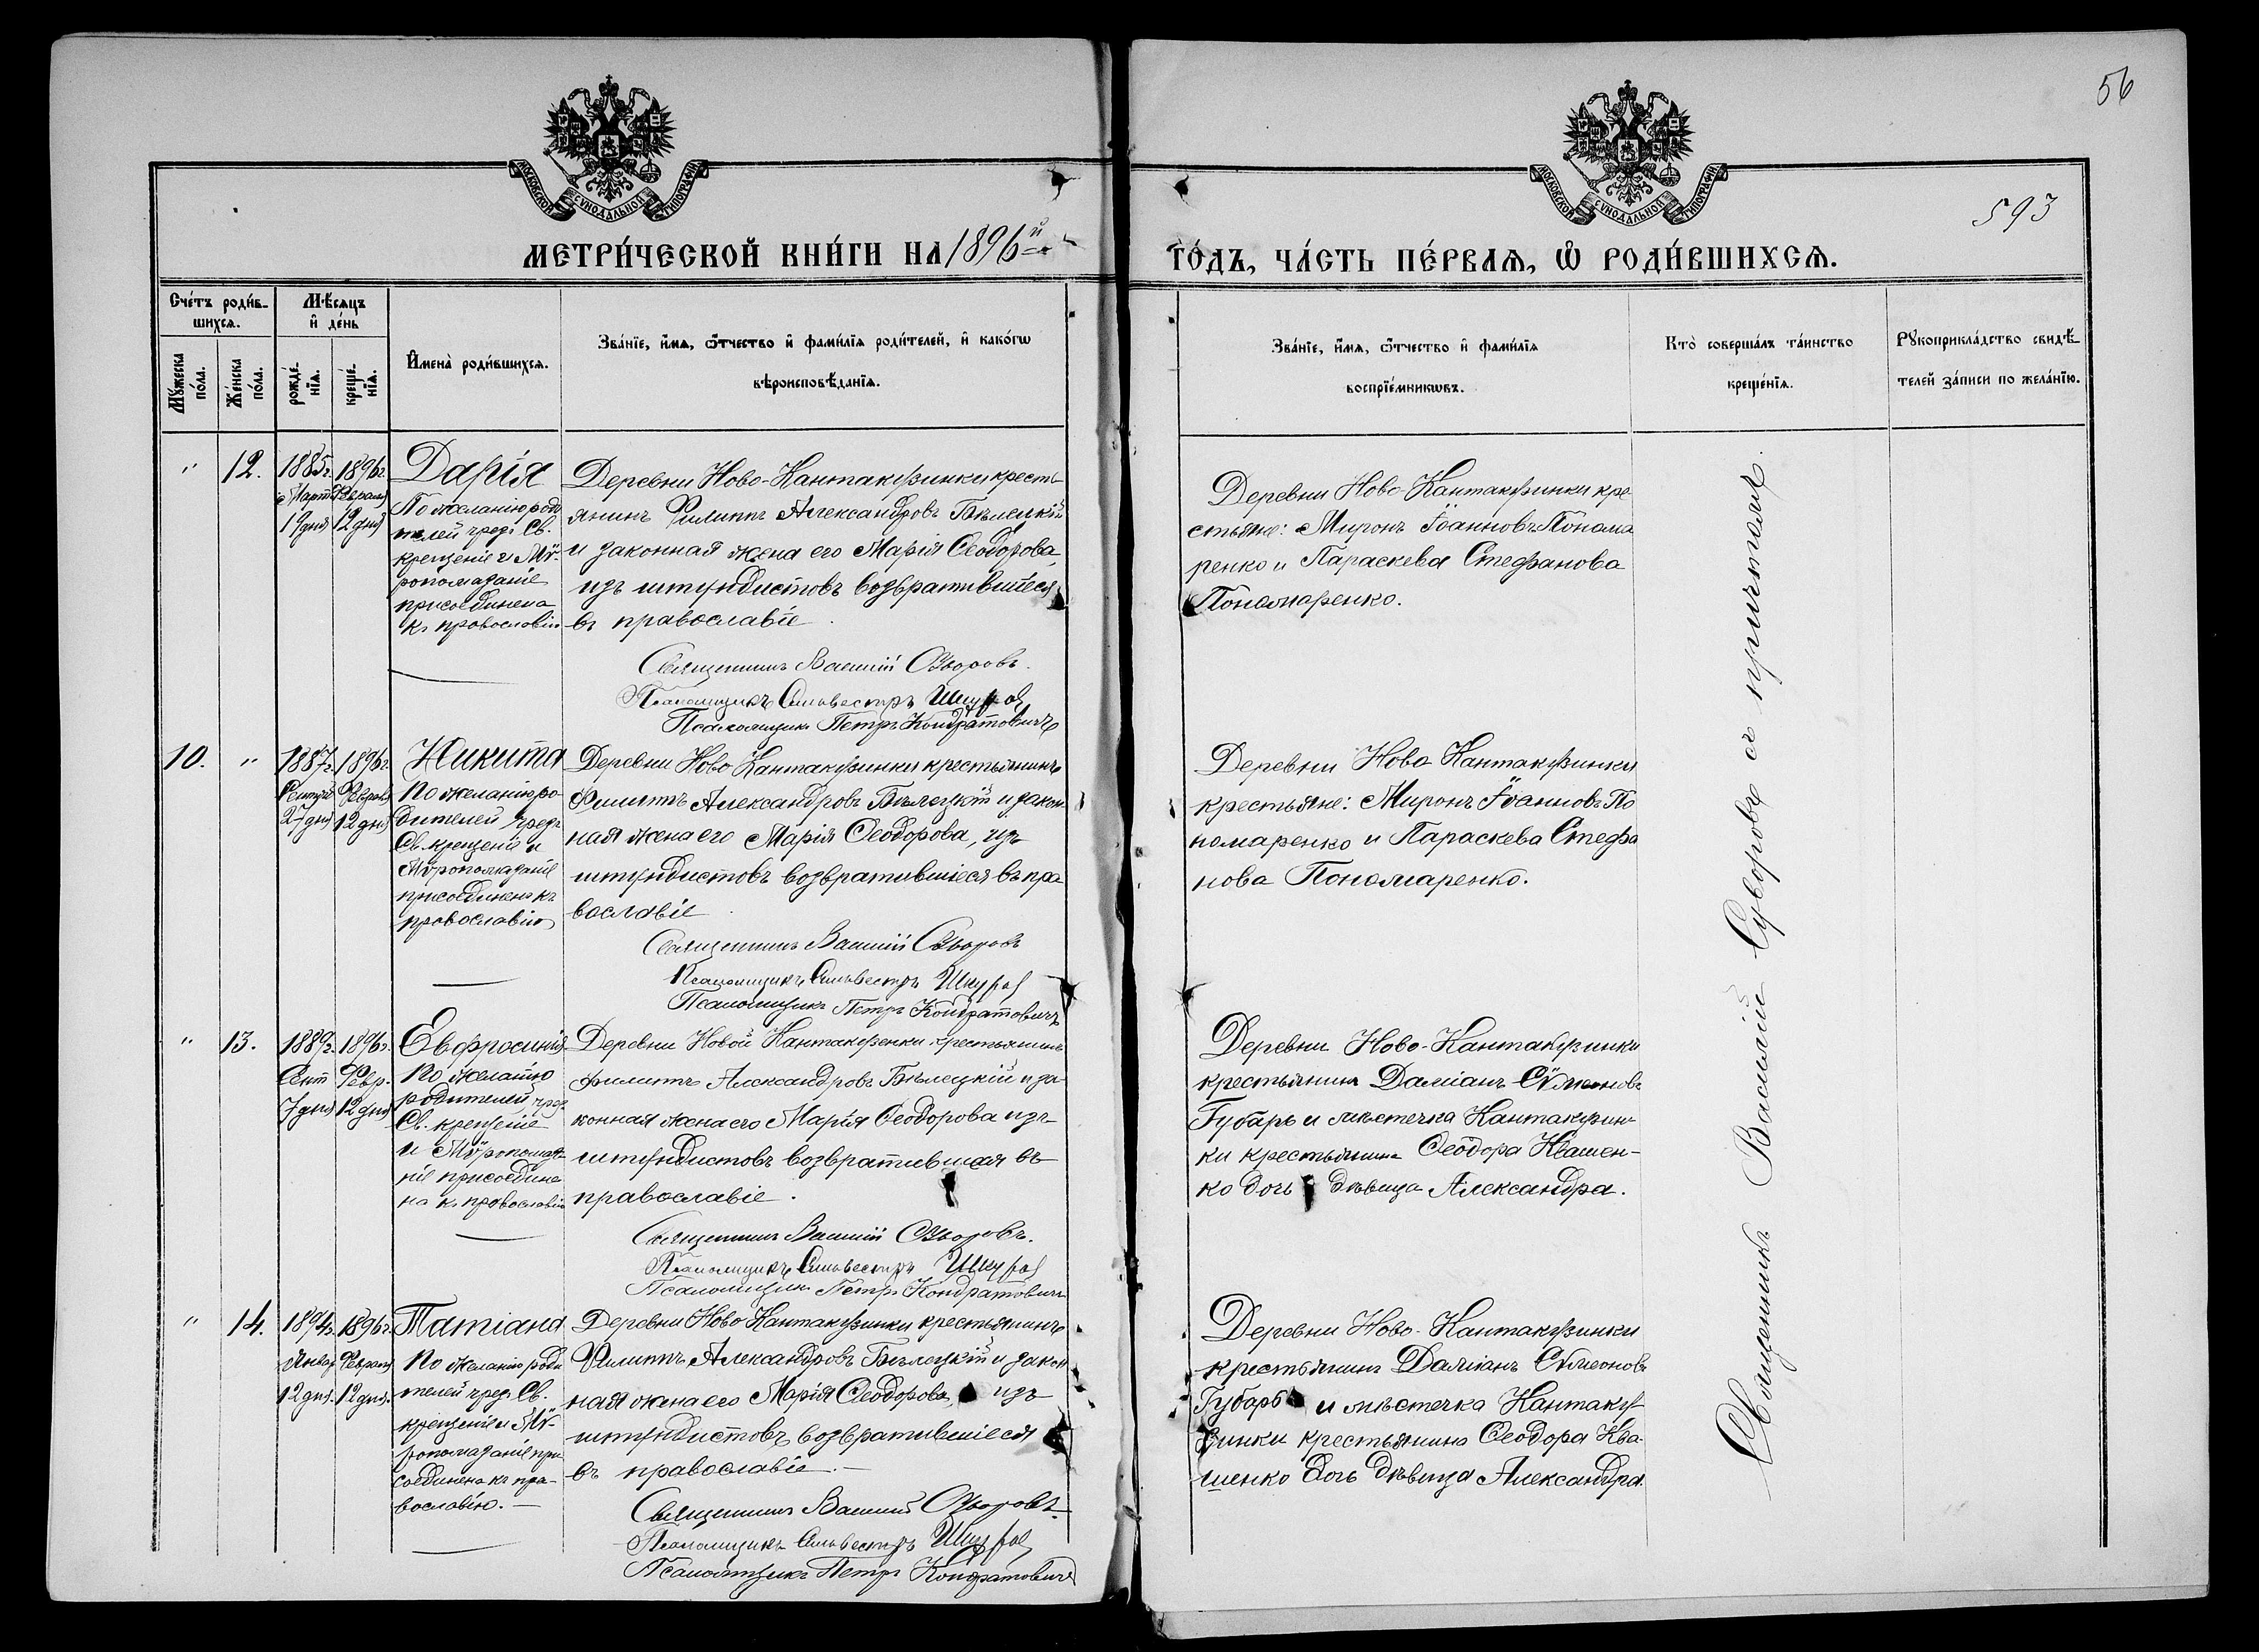 56
593
МОСКОВСКОЙ СУНОДАЛЬНОЙ ТИПОГРАФІИ
МОСКОВСКОЙ СУНОДАЛЬНОЙ ТИПОГРАФІИ
МЕТРИ́ЧЕСКОЙ КНИ́ГИ НА 1896й
ГО́ДЪ, ЧА́СТЬ ПЕ́РВАѦ, Ѡ РОДИ́ВШИХСѦ.
Сче́тъ роди́в-
шихсѧ.
Мꙋ́жеска
по́ла.
Же́нска
по́ла.
Мѣ́сѧцъ
и҆ де́нь
рожде́-
нїѧ.
креще́-
нїѧ.
И҆мена̀ роди́вшихсѧ.
Зва́нїе, и҆́мѧ, ѻ҆́тчество и҆ фами́лїѧ роди́телей, и҆ како́гѡ
вѣроисповѣ́данїѧ.
Зва́нїе, и҆́мѧ, ѻ҆́тчество и҆ фами́лїѧ
воспрїе́мникѡвъ.
Кто̀ соверша́лъ та́инство
креще́нїѧ.
Рꙋкоприкла́дство свидѣ́-
телей за́писи по жела́нїю.
" 12.
1885г.
Март
19 дня
1896г.
Февраля
12 дня
Дарія
По желанію роди
телей чрез Св.
крещеніе и Мѵ-
ропомазаніе
присоединена
къ православію
Деревни Ново-Кантакузинки кресть
янинъ Филиппъ Александровъ Бѣлецкій
и законная жена его Марія Ѳеодорова,
изъ штундистовъ возвратившіеся
въ православіе
Священникъ Василій Суворовъ.
Псаломщикъ Сильвестръ
Псаломщикъ Петръ Кондратовичъ
Деревни Ново-Кантакузинки кре
стьяне: Миронъ Іоанновъ Понома
ренко и Параскева Стефанова
Пономаренко.
10. "
1887г.
27 дня
1896г.
Февраля
12 дня
Никита
По желанію ро-
дителей чрезъ
Св. крещеніе и
Мѵропомазаніе
присоединенъ къ
православію
Деревни Ново Кантакузинки крестьянинъ
Филиппъ Александровъ Бѣлецкій и закон
ная жена его Марія Ѳеодорова, изъ
штундистовъ возвратившіеся въ пра
вославіе
Священникъ Василій Суворовъ
Псаломщикъ Сильвестръ
Псаломщикъ Петръ Кондратовичъ
Деревни Ново Кантакузинки
крестьяне: Миронъ Іоанновъ По
номаренко и Параскева Стефа
нова Пономаренко.
" 13.
1889г.
Сент
7 дня
1896г.
Февр.
12 дня
Евфросинія
По желанію
родителей чрез
Св. крещеніе
и Мѵропомаза
ніе присоедине
на къ православію
Деревни Новой Кантакузенки крестьянинъ
Филиппъ Александровъ Бѣлецкій и за
конная жена его Марія Ѳеодорова изъ
штундистовъ возвратившіеся въ
православіе.
Священникъ Василій Суворовъ.
Псаломщикъ Сильвестръ
Псаломщикъ Петръ Кондратовичъ
Деревни Ново-Кантакузинки
крестьянинъ Даміанъ Сѵмеоновъ
Губарь и мѣстечка Кантакузин-
ки крестьянина Ѳеодора Квашен-
ко дочь дѣвица Александра.
" 14.
1894г.
Январ
12 дня.
1896г.
Февраля
12 дня.
Татіана
По желанію роди
телей чрез Св.
крещеніе и Мѵ-
ропомазаніе при
соединена къ пра-
вославію.
Деревни Ново Кантакузинки крестьянинъ
Филиппъ Александровъ Бѣлецкій и закон
ная жена его Марія Ѳеодорова, изъ
штундистовъ возвратившіеся
въ православіе.
Священникъ Василій Суворовъ.
Псаломщикъ Сильвестръ
Псаломщикъ Петръ Кондратовичъ
Деревни Ново-Кантакузинки
крестьянинъ Даміанъ Сѵмеоновъ
Губарь и мѣстечка Кантаку
зинки крестьянина Ѳеодора Ква-
шенко дочь дѣвица Александра.
Священникъ Василій Суворовъ съ причтомъ.